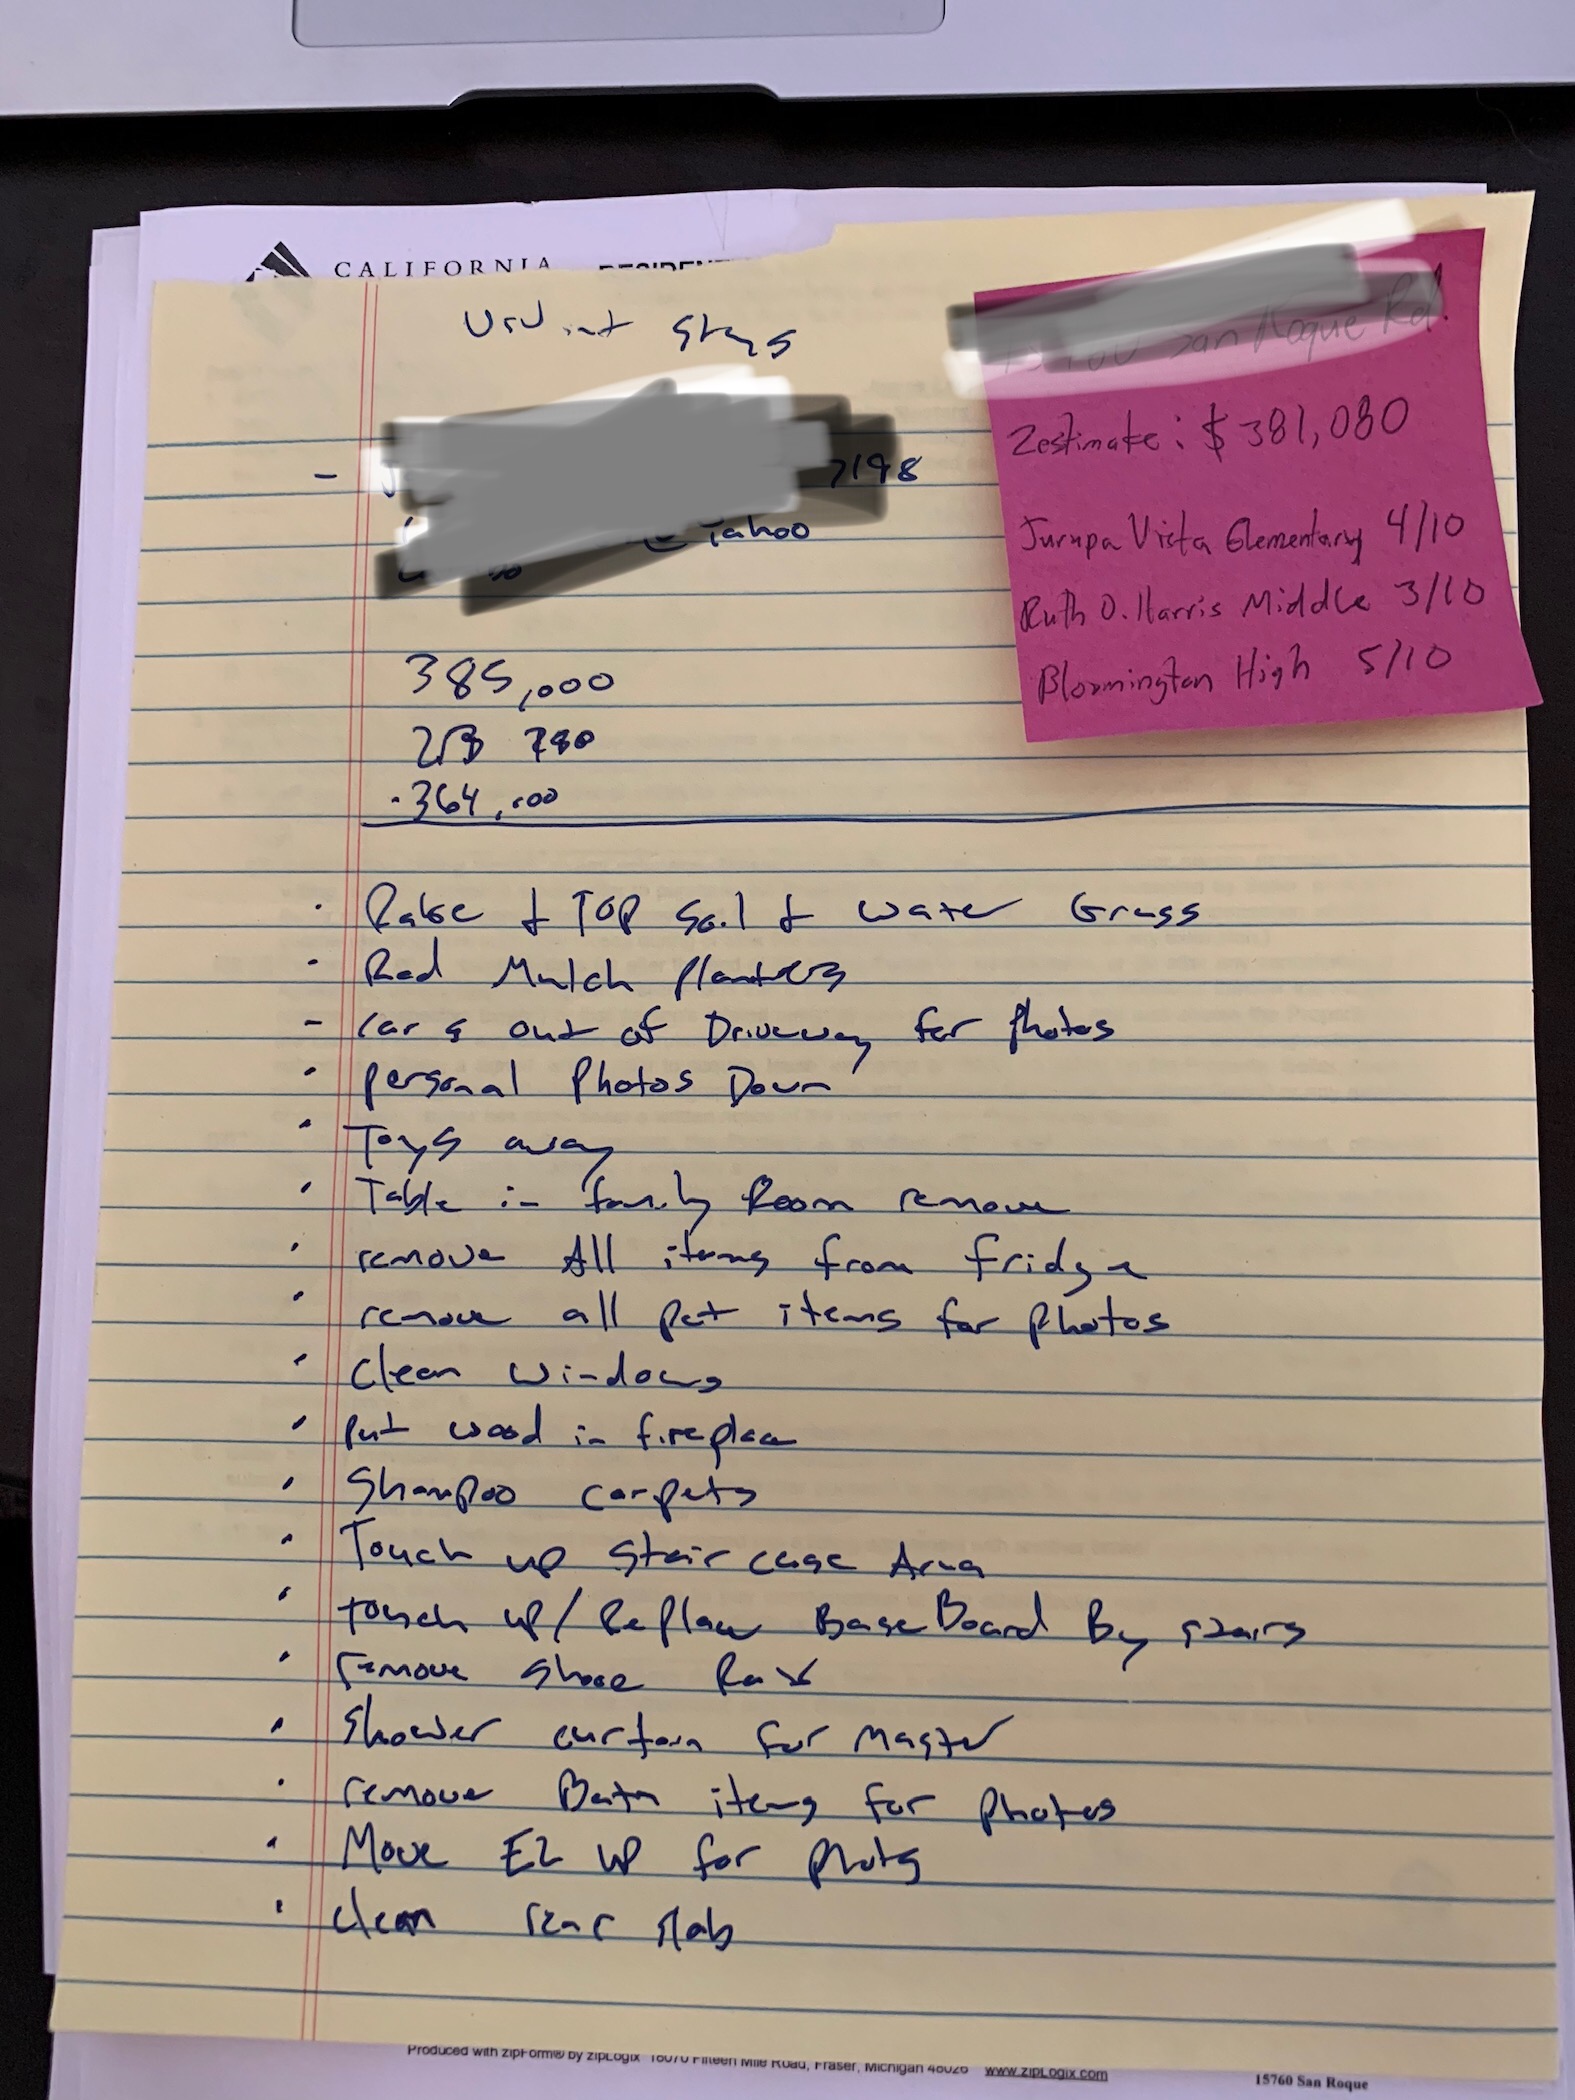 CALIFORNIA
stays
7198
@ Yahoo
385,000
780
364,000
San Roque Rd.
Zestimate: $381,080
Jurupa Vista Elementary 4/10
Ruth O. Harris Middle 3/10
Bloomington High 5/10
· Rake & TOP soil & water Grass
· Red Mulch planters
- cars out of Driveway for photos
· personal Photos Down
· Toys away
· Table in family Room remove
· remove All items from fridge
· remove all pet items for photos
· clean windows
· put wood in fireplace
· Shampoo carpets
· Touch up stair case Area
· touch up/Replace BaseBoard By stairs
· remove shoe Rack
· Shower curtain for master
· remove Bath items for photos
· Move EZ UP for photos
· clean rear slab
Produced with zipForm® by zipLogix 18070 Fifteen Mile Road, Fraser, Michigan 48026 www.zipLogix.com
15760 San Roque